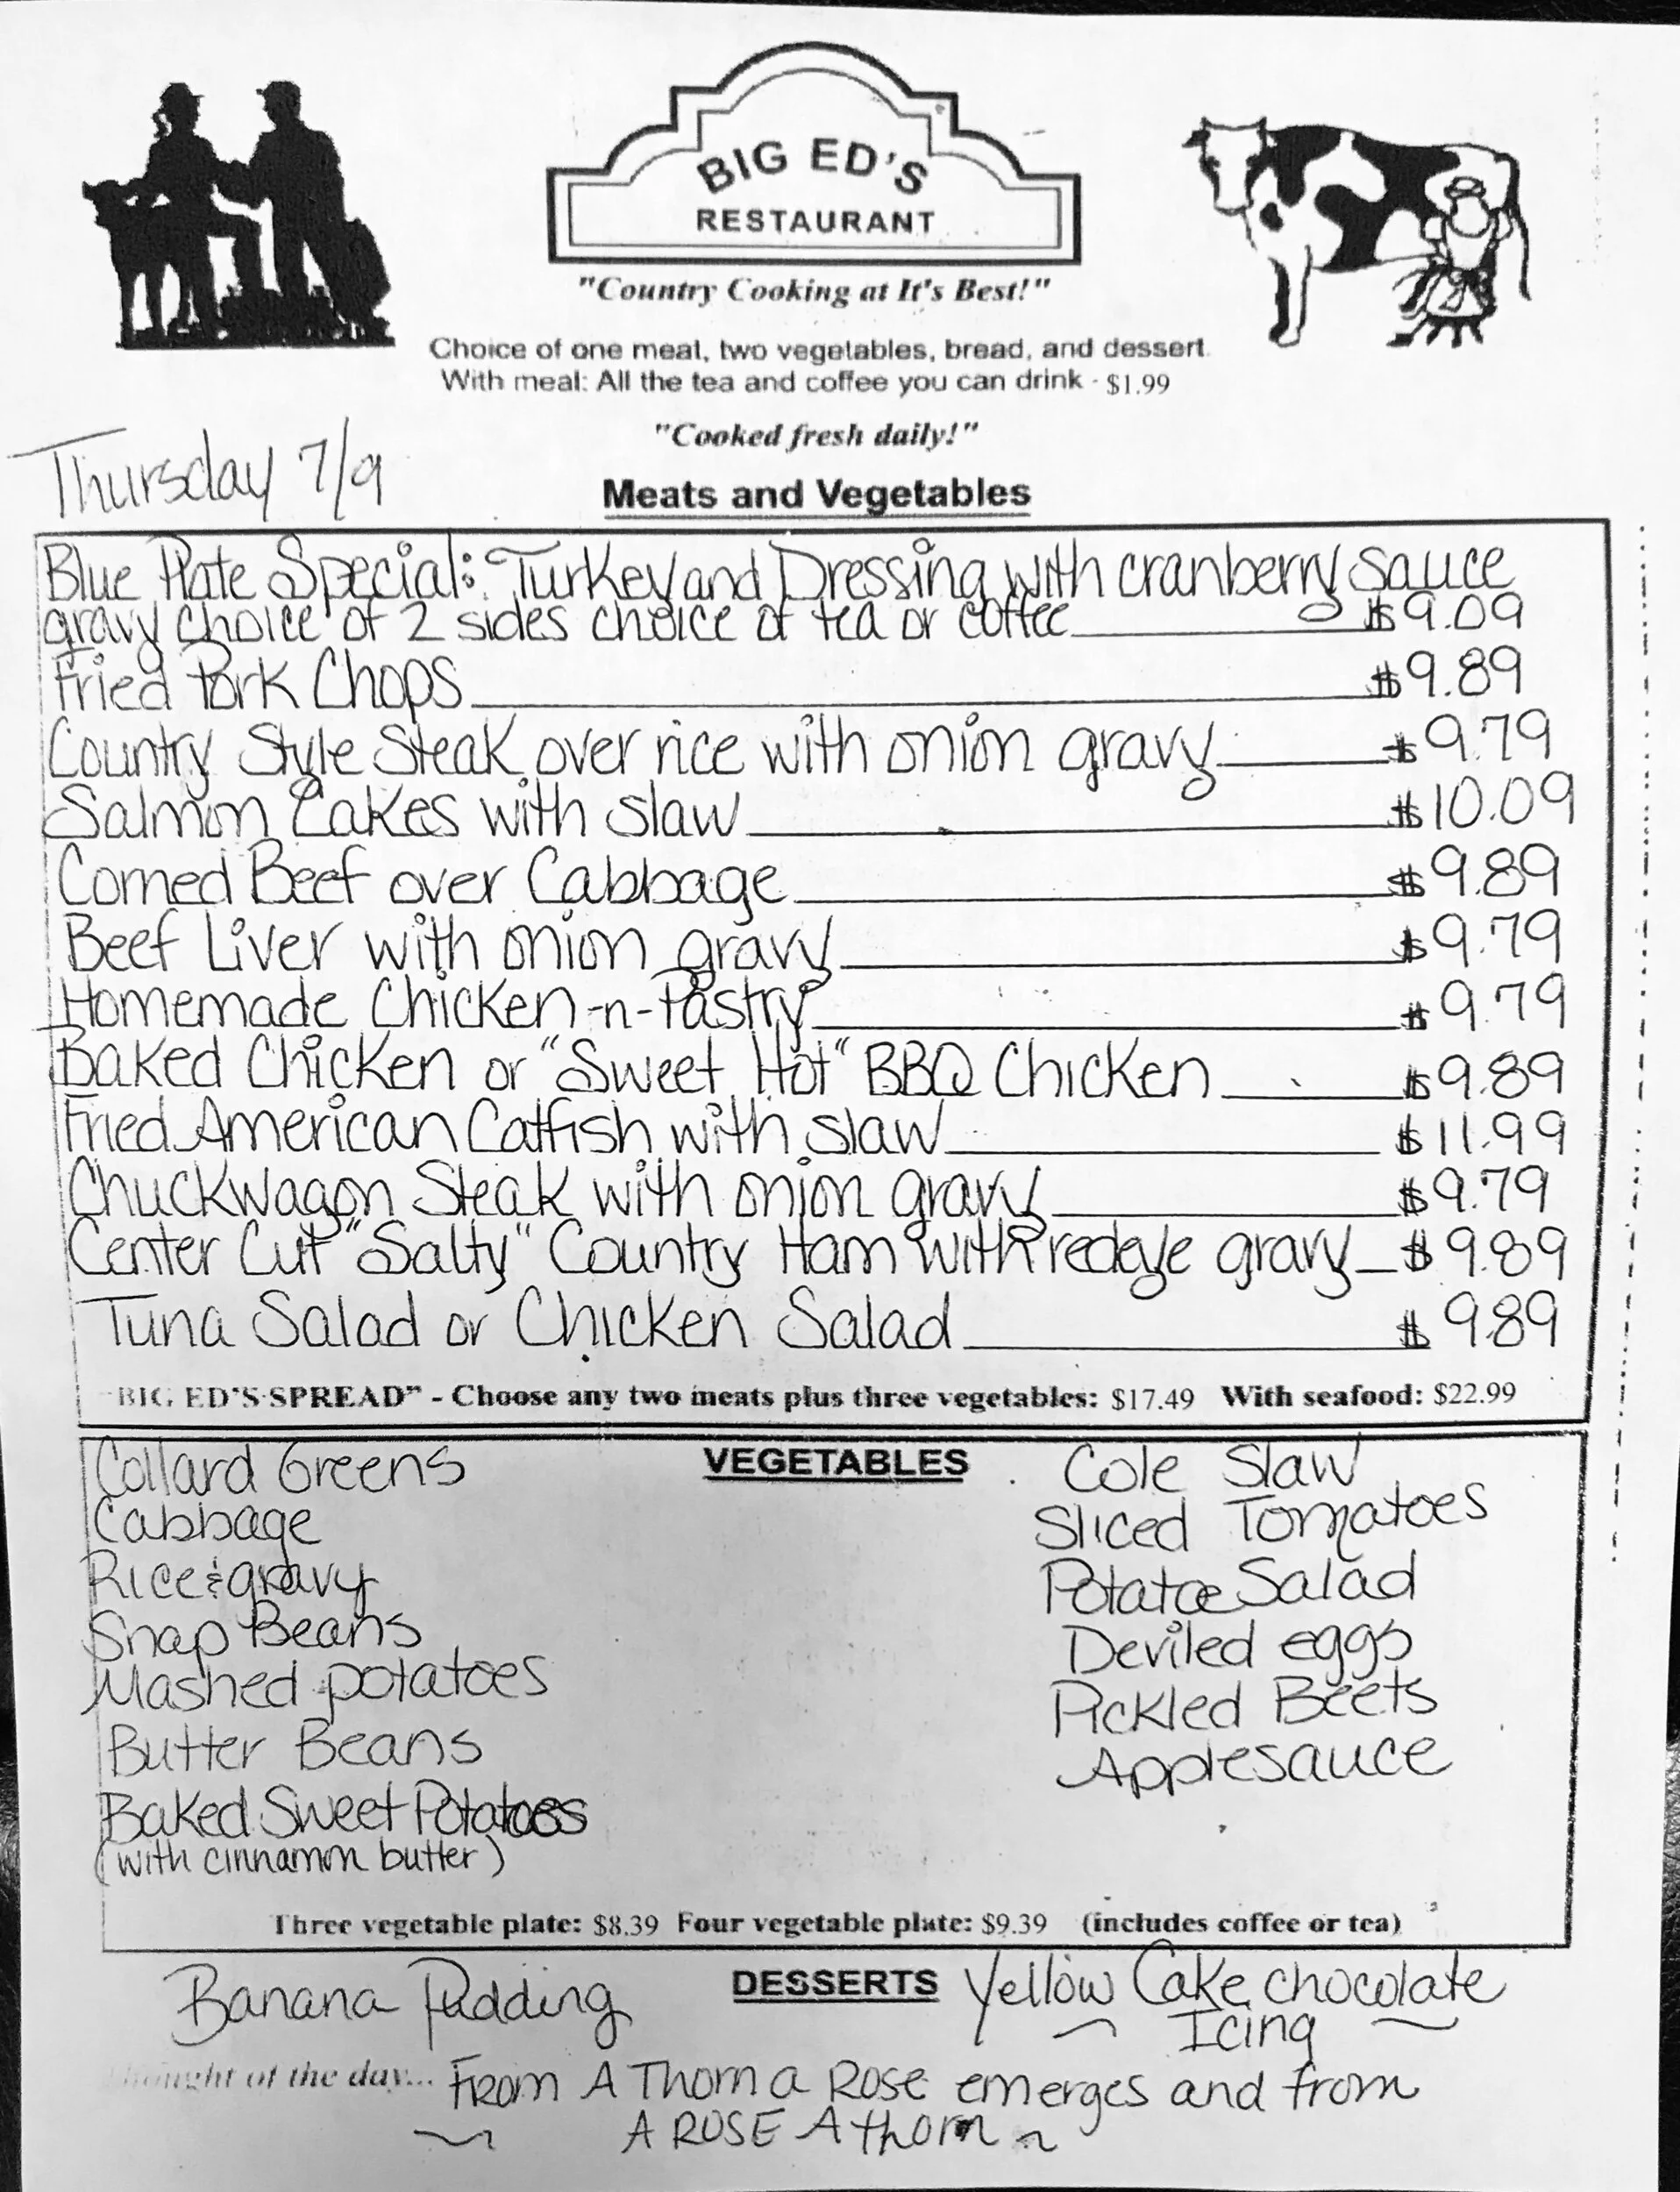 BIG ED'S
RESTAURANT
"Country Cooking at It's Best!"
Choice of one meat, two vegetables, bread, and dessert.
With meal: All the tea and coffee you can drink - $1.99
"Cooked fresh daily!"
Thursday 7/9
Meats and Vegetables
Blue Plate Special: Turkey and Dressing with cranberry sauce
gravy choice of 2 sides choice of tea or coffee $9.09
Fried Pork Chops $9.89
Country Style Steak over rice with onion gravy $9.79
Salmon Cakes with slaw $10.09
Corned Beef over Cabbage $9.89
Beef Liver with onion gravy $9.79
Homemade Chicken-n-Pastry $9.79
Baked Chicken or "Sweet Hot" BBQ Chicken $9.89
Fried American Catfish with slaw $11.99
Chuckwagon Steak with onion gravy $9.79
Center Cut "Salty" Country Ham with redeye gravy $9.89
Tuna Salad or Chicken Salad $9.89
"BIG ED'S SPREAD" - Choose any two meats plus three vegetables: $17.49 With seafood: $22.99
VEGETABLES
Collard Greens
Cabbage
Rice & gravy
Snap Beans
Mashed potatoes
Butter Beans
Baked Sweet Potatoes
(with cinnamon butter)
Cole Slaw
Sliced Tomatoes
Potatoe Salad
Deviled eggs
Pickled Beets
Applesauce
Three vegetable plate: $8.39 Four vegetable plate: $9.39 (includes coffee or tea)
DESSERTS
Banana Pudding
Yellow Cake chocolate
Icing
Thought of the day... From A Thorn a Rose emerges and from
A ROSE A thorn